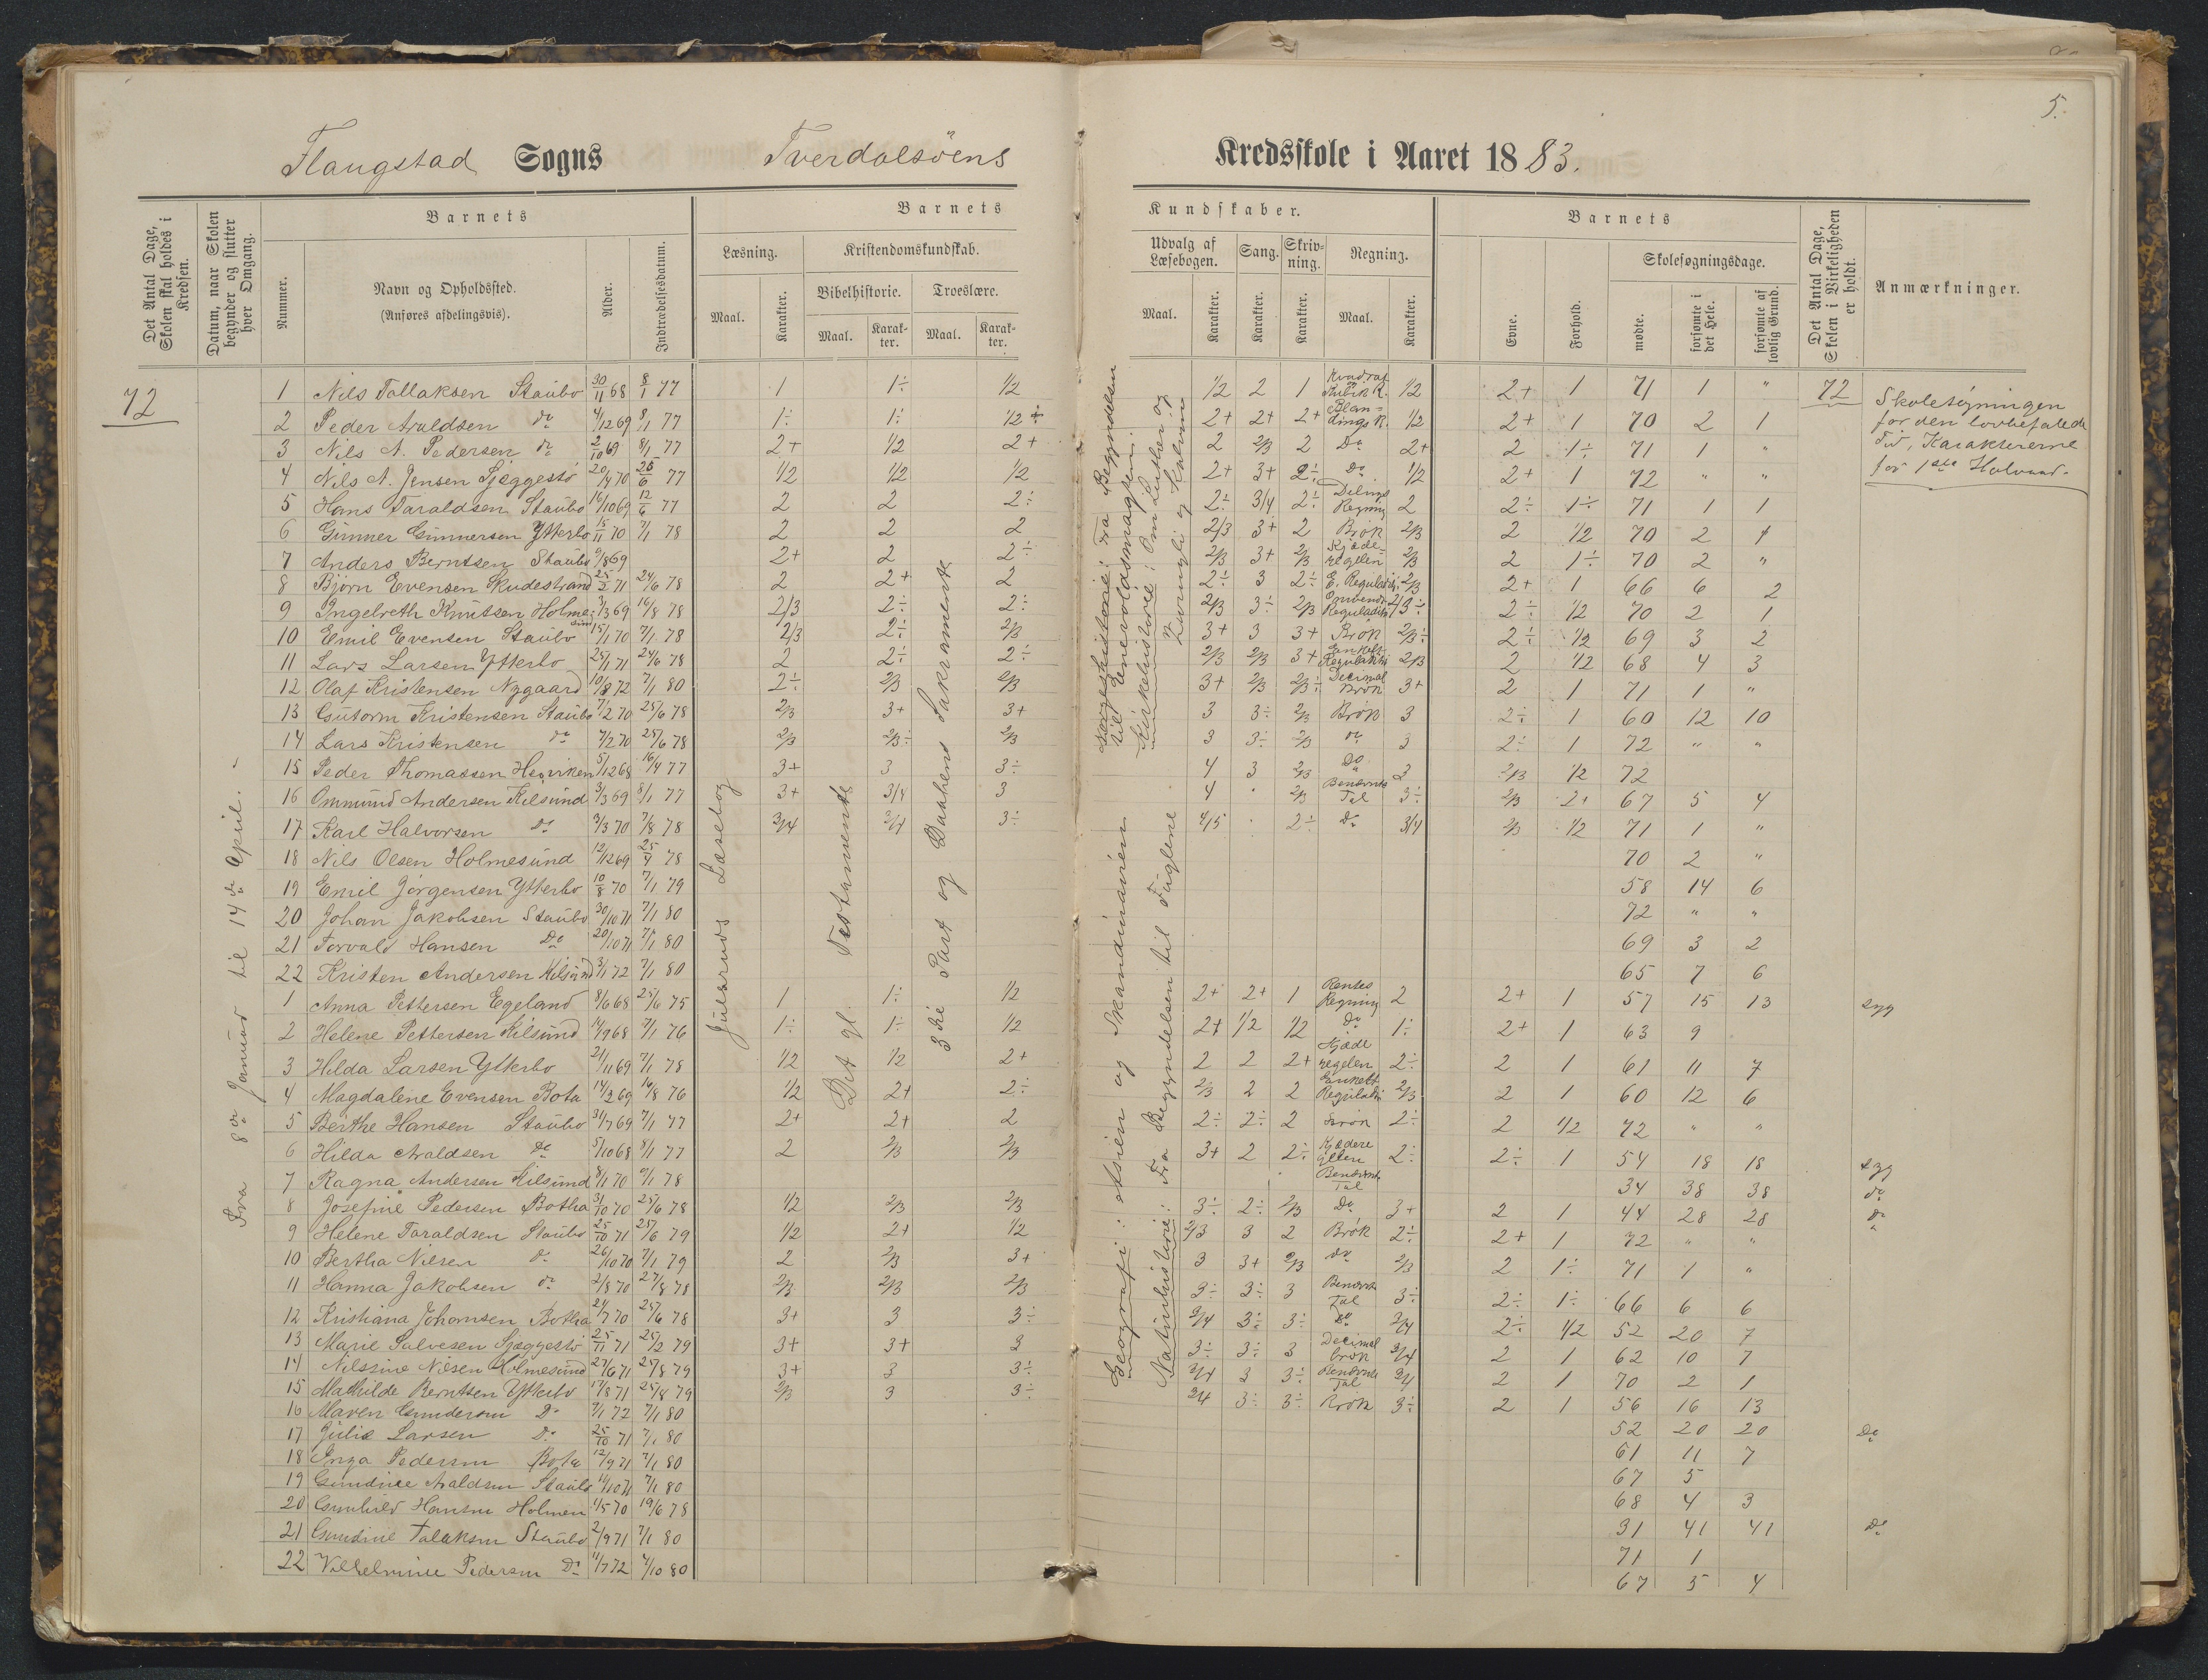 5.
Flaugstad Sogns Tverdalsöens Kredsskole i Aaret 1883.
Det Antal Dage, Skolen skal holdes i Kredsen.
Datum, naar Skolen begynder og slutter hver Omgang.
Barnets
Nummer.
Navn og Opholdssted.
(Anføres afdelingsvis).
Alder.
Indtrædelsesdatum.
Barnets Kundskaber.
Læsning.
Maal. Karakter.
Kristendomskundskab.
Bibelhistorie. Troeslære.
Maal. Karakter. Maal. Karakter.
Udvalg af Læsebogen.
Maal. Karakter.
Sang.
Karakter.
Skrivning.
Karakter.
Regning.
Maal. Karakter.
Barnets
Evne. Forhold.
Skolesøgningsdage.
mødte. forsømte i det Hele. forsømte af lovlig Grund.
Det Antal Dage, Skolen i Virkeligheden er holdt.
Anmærkninger.
72
Fra 8de Januar til 14de April.
Julsruds Læsebog
Det gl. Testamente
3die Part og Daabens Sakramente
til Enevoldsmagten.
Kirkehistorie: Om Luther og
Zwingli og Kalvin
Geografi: Asien og Skandinavien
Naturhistorie: Fra Begyndelsen til Fuglene
1 Nils Tallaksen Staubo 30/11 68 8/1 77 1 1÷ 1/2 1/2 2 1 Kvadrat Kubik R. 1/2 2+ 1 71 1 " 72
2 Peder Araldsen do 4/12 69 8/1 77 1÷ 1÷ 1/2÷ 2+ 2+ 2+ Blandings R. 1/2 2+ 1 70 2 1
3 Nils A. Pedersen do 2/10 69 8/1 77 2+ 1/2 2+ 2 2/3 2 Do 2+ 2 1÷ 71 1 "
4 Nils A. Jensen Sjæggestö 20/4 70 26/6 77 1/2 1/2 1/2 2+ 3+ 2÷ Do 1/2 2+ 1 72 " "
5 Hans Taraldsen Staubo 16/10 69 12/6 77 2 2 2÷ 2÷ 3/4 2÷ Delings Regning 2 2÷ 1÷ 71 1 1
6 Gunner Gunnersen Ytterbo 18/11 70 7/1 78 2 2 2 2/3 3+ 2 Brök 2/3 2 1/2 70 2 1
7 Anders Berntsen Staubo 9/8 69 2+ 2 2÷ 2/3 3+ 2/3 Kjæderegelen 2/3 2 1÷ 70 2 "
8 Björn Evensen Skudestrand 25/2 71 24/6 78 2 2+ 2 2÷ 3 2÷ E. Reguladetri 2/3 2+ 1 66 6 2
9 Ingebreth Knutsen Holmesund 3/3 69 16/8 78 2/3 2÷ 2÷ 2/3 3÷ 2/3 Omvendt Reguladetri 2/3÷ 2÷ 1/2 70 2 1
10 Emil Evensen Staubo 15/1 70 7/1 78 2/3 2÷ 2/3 3+ 3 3+ Brök 2/3÷ 2÷ 1/2 69 3 2
11 Lars Larsen Ytterbo 25/1 71 24/6 78 2 2÷ 2÷ 2/3 2/3 3+ Enkelt Reguladetri 2/3 2 1/2 68 4 3
12 Olaf Kristensen Nygaard 10/8 72 7/1 80 2÷ 2/3 2/3 3+ 2/3 2/3÷ Decimal Brök 3+ 2 1 71 1 "
13 Gutorm Kristensen Staubo 7/2 70 25/6 78 2/3 3+ 3+ 3 3÷ 2/3 Brök 3 2÷ 1 60 12 10
14 Lars Kristensen do 7/2 70 25/6 78 2/3 2/3÷ 2/3 3 3÷ 2/3 do 3 2÷ 1 72 " "
15 Peder Thomassen 5/12 68 16/4 77 3+ 3 3÷ 4 3 2/3 Do 3 2/3 1/2 72
16 Ommund Andersen Kilsund 3/3 69 8/1 77 3+ 3/4 3 4 2/3 Benævnte Tal 3÷ 2/3 2+ 67 5 4
17 Karl Halvorsen Do 3/3 70 7/8 78 3/4 3/4 3÷ 4/5 2÷ Do 3/4 2/3 1/2 71 1 "
18 Nils Olsen Holmesund 12/12 69 25/4 78 70 2 "
19 Emil Jörgensen Ytterbo 10/8 70 7/1 79 58 14 6
20 Johan Jakobsen Staubo 30/10 71 7/1 80 72 " "
21 Torvald Hansen Do 20/10 71 7/1 80 69 3 2
22 Kristen Andersen Kilsund 3/1 72 7/1 80 65 7 6
1 Anna Pettersen Egeland 8/6 68 25/6 75 1 1÷ 1/2 2+ 2+ 1 Rentes Regning 2 2+ 1 57 15 13 syg
2 Helene Pettersen Kilsund 14/9 68 7/1 76 1÷ 1÷ 1/2 2+ 1/2 1/2 Do 1÷ 2+ 1 63 9
3 Hilda Larsen Ytterbo 21/11 69 7/1 78 1/2 1/2 2+ 2 2 2+ Kjæde regelen 2÷ 2 1 61 11 7
4 Magdalene Evensen Bota 14/2 69 16/8 76 1/2 2+ 2÷ 2/3 2 2 Enkelt Reguladetri 2/3 2 1 60 12 6
5 Berthe Hansen Staubo 31/7 69 7/1 77 2+ 2+ 2 2÷ 2÷ 2 Brök 2÷ 2 1/2 72 " "
6 Hilda Araldsen Do 5/10 68 8/1 77 2 2/3 2/3 3+ 2 2÷ 2÷ 2÷ 1 54 18 18 syg
7 Ragna Andersen Kilsund 8/1 70 9/1 78 Benævnte Tal 34 38 38 do
8 Josefine Pedersen Botha 3/10 70 25/6 78 1/2 2/3 2/3 3÷ 2÷ 2/3 Do 3+ 2 1 44 28 28 do
9 Helene Taraldsen Staubo 25/10 71 25/6 79 1/2 2+ 1/2 2/3 3 2 Brök 2÷ 2+ 1 72 " "
10 Bertha Nilsen do 26/10 70 7/1 79 2 2/3 3+ 3 3+ 2/3 do 2/3 2 1÷ 71 1 "
11 Hanna Jakobsen do 2/8 70 27/8 78 2/3 2/3 2/3 3÷ 3÷ 3 Benævnte Tal 3÷ 2÷ 1÷ 66 6 6
12 Kristiana Johansen Botha 24/7 70 25/6 78 3+ 3 3÷ 3/4 3÷ 3÷ Do 3/4 2÷ 1/2 52 20 7
13 Marie Salvesen Sjæggestö 25/11 71 25/2 79 3+ 3+ 3 3÷ 3÷ 3 Decimal brök 3/4 2 1 62 10 7
14 Nilsine Nilsen Holmesund 27/6 71 25/8 79 3+ 3 3÷ 3/4 3 3÷ Benævnte Tal 3/4 2 1 70 2 1
15 Mathilde Berntsen Ytterbo 17/8 71 25/8 79 2/3 3 3÷ 3/4 3÷ 3÷ Brök 3÷ 2 1 56 16 13
16 Maren Gundersen Do 7/1 72 7/1 80 52 20 20 Do
17 Julie Larsen Do 25/10 71 7/1 80 61 11 7
18 Inga Pedersen Bota 12/9 71 7/1 80 67 5
19 Gundine Araldsen Staubo 11/10 71 7/1 80 68 4 3
20 Gunhild Hansen Holmen 1/5 70 19/6 78 31 41 41 Do
21 Gundine Talaksen Staubo 2/9 71 7/1 80 71 1
22 Vilhelmine Pedersen Do 11/7 72 4/10 80 67 5 4
Skolesögningen
for den lovbefalede
Tid, Karaktererne
for 1ste Halvaar.